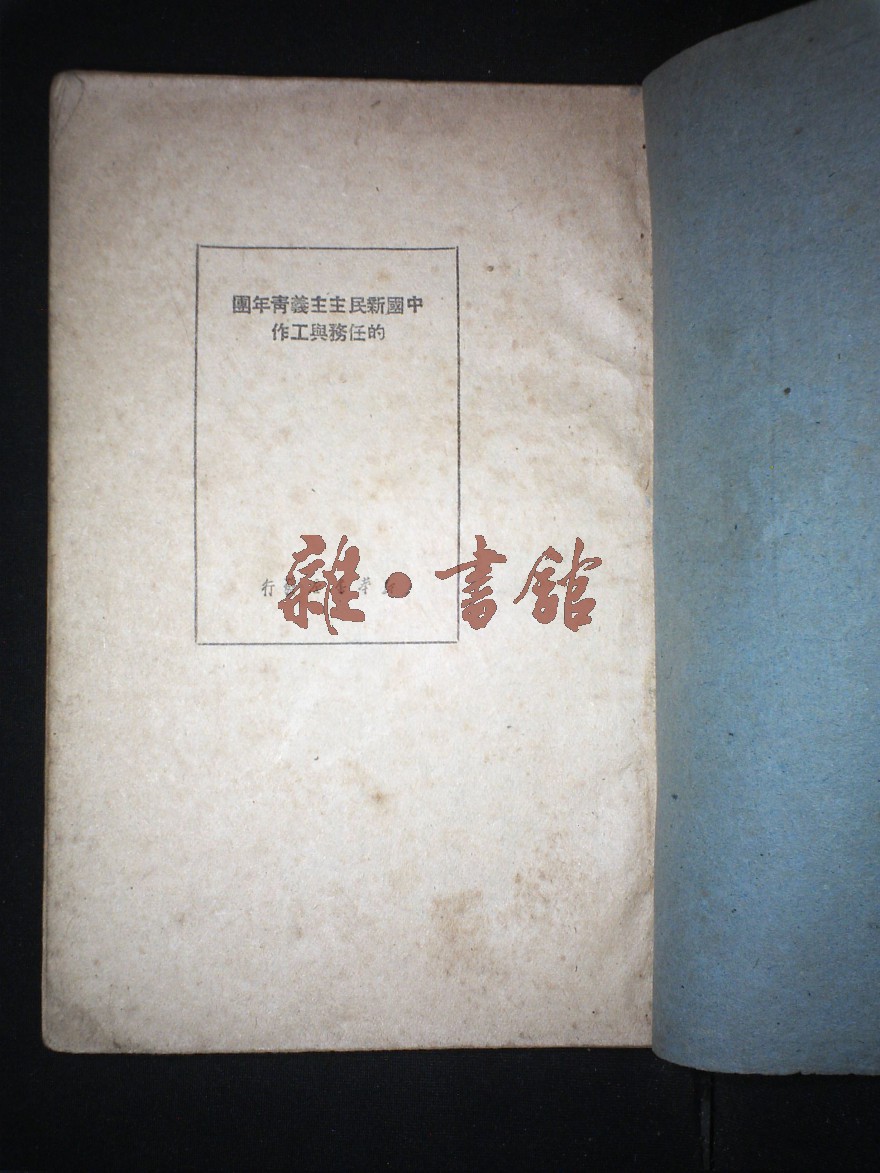 中國新民主主義青年團
的任務與工作
雜·書館
行